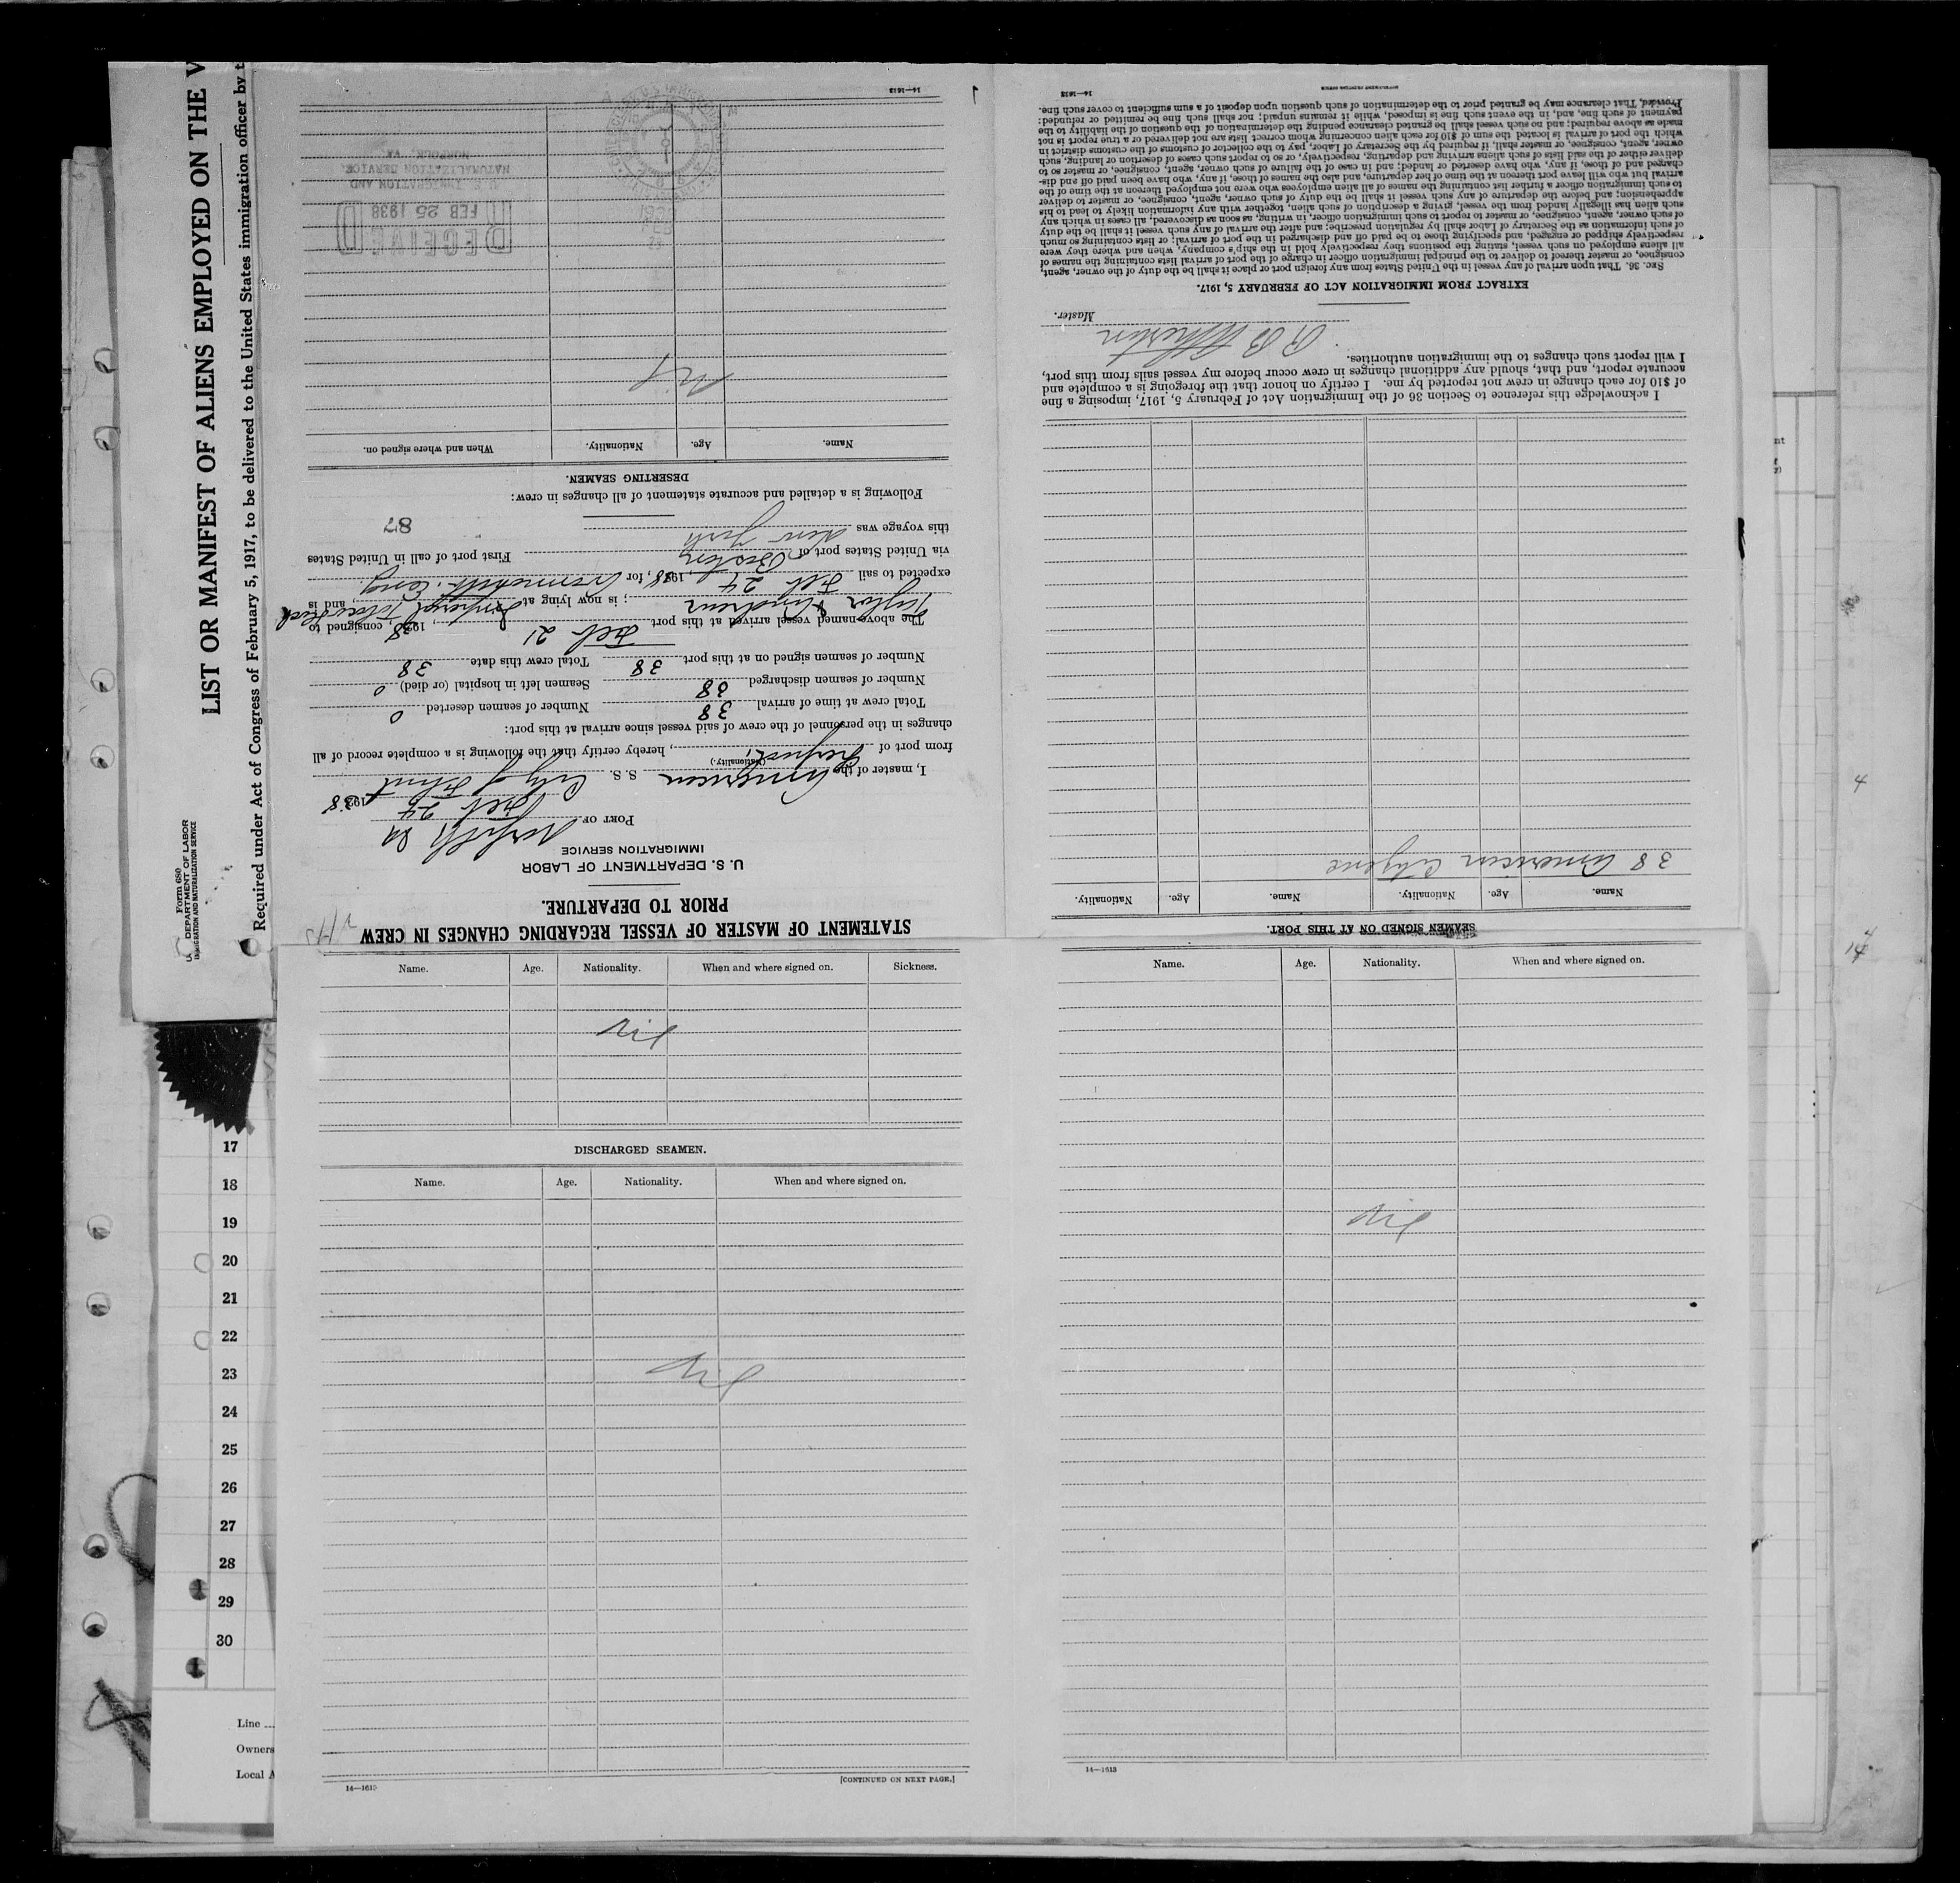 LIST OR MANIFEST OF ALIENS EMPLOYED ON THE V
Required under Act of Congress of February 5, 1917, to be delivered to the United States immigration officer by t
Form 680
DEPARTMENT OF LABOR
IMMIGRATION AND NATURALIZATION SERVICE
STATEMENT OF MASTER OF VESSEL REGARDING CHANGES IN CREW
PRIOR TO DEPARTURE.
U. S. DEPARTMENT OF LABOR
IMMIGRATION SERVICE
PORT OF Norfolk Va
Feb 24 1938
I, master of the American S. S. City of Flint
(Nationality.)
from port of Liverpool, hereby certify that the following is a complete record of all
changes in the personnel of the crew of said vessel since arrival at this port:
Total crew at time of arrival 38 Number of seamen deserted 0
Number of seamen discharged 38 Seamen left in hospital (or died) 0
Number of seamen signed on at this port 38 Total crew this date 38
The above-named vessel arrived at this port Feb 21, 1938, consigned to
; is now lying at Imperial Tobacco, and is
expected to sail Feb 24, 1938, for
via United States port of Boston First port of call in United States
this voyage was New York
87
Following is a detailed and accurate statement of all changes in crew:
DESERTING SEAMEN.
Name. Age. Nationality. When and where signed on.
Nil
RECEIVED
FEB 25 1938
U. S. IMMIGRATION AND
NATURALIZATION SERVICE
NORFOLK, VA.
14—1613
Name. Age. Nationality. When and where signed on. Sickness.
Nil
DISCHARGED SEAMEN.
Name. Age. Nationality. When and where signed on.
Nil
14—1613
[CONTINUED ON NEXT PAGE.]
Name. Age. Nationality. When and where signed on.
Nil
14—1613
SEAMEN SIGNED ON AT THIS PORT.
Name. Age. Nationality. Name. Age. Nationality.
38 American Citizens
I acknowledge this reference to Section 36 of the Immigration Act of February 5, 1917, imposing a fine
of $10 for each change in crew not reported by me. I certify on honor that the foregoing is a complete and
accurate report, and that, should any additional changes in crew occur before my vessel sails from this port,
I will report such changes to the immigration authorities.
Master.
EXTRACT FROM IMMIGRATION ACT OF FEBRUARY 5, 1917.
SEC. 36. That upon arrival of any vessel in the United States from any foreign port or place it shall be the duty of the owner, agent,
consignee, or master thereof to deliver to the principal immigration officer in charge of the port of arrival lists containing the names of
all aliens employed on such vessel, stating the positions they respectively hold in the ship's company, when and where they were
respectively shipped or engaged, and specifying those to be paid off and discharged in the port of arrival; or lists containing so much
of such information as the Secretary of Labor shall by regulation prescribe; and after the arrival of any such vessel it shall be the duty
of such owner, agent, consignee, or master to report to such immigration officer, in writing, as soon as discovered, all cases in which any
such alien has illegally landed from the vessel, giving a description of such alien, together with any information likely to lead to his
apprehension; and before the departure of any such vessel it shall be the duty of such owner, agent, consignee, or master to deliver
to such immigration officer a further list containing the names of all alien employees who were not employed thereon at the time of the
arrival but who will leave port thereon at the time of her departure, and also the names of those, if any, who have been paid off and dis-
charged and of those, if any, who have deserted or landed; and in case of the failure of such owner, agent, consignee, or master so to
deliver either of the said lists of such aliens arriving and departing, respectively, or so to report such cases of desertion or landing, such
owner, agent, consignee, or master shall, if required by the Secretary of Labor, pay to the collector of customs of the customs district in
which the port of arrival is located the sum of $10 for each alien concerning whom correct lists are not delivered or a true report is not
made as above required; and no such vessel shall be granted clearance pending the determination of the question of the liability to the
payment of such fine, and, in the event such fine is imposed, while it remains unpaid; nor shall such fine be remitted or refunded:
Provided, That clearance may be granted prior to the determination of such question upon deposit of a sum sufficient to cover such fine.
14—1613
17
18
19
20
21
22
23
24
25
26
27
28
29
30
Line
Owners
Local A